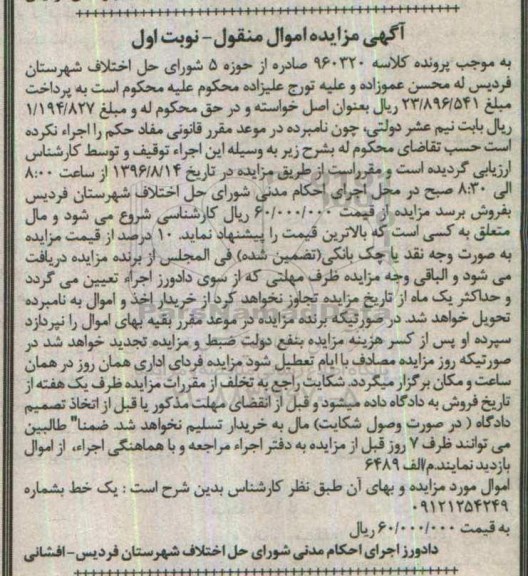 آگهی مزایده اموال منقول - نوبت اول
به موجب پرونده کلاسه ۹۶۰۳۲۰ صادره از حوزه ۵ شورای حل اختلاف شهرستان
فردیس له محسن عموزاده و علیه تورج علیزاده محکوم علیه محکوم است به پرداخت
مبلغ ۲۳/۸۹۶/۵۴۱ ریال بعنوان اصل خواسته و در حق محکوم له و مبلغ ۱/۱۹۴/۸۲۷
ریال بابت نیم عشر دولتی، چون نامبرده در موعد مقرر قانونی مفاد حکم را اجراء نکرده
است حسب تقاضای محکوم له بشرح زیر به وسیله این اجراء توقیف و توسط کارشناس
ارزیابی گردیده است و مقرر است از طریق مزایده در تاریخ ۱۳۹۶/۸/۱۴ از ساعت ۸:۰۰
الی ۸:۳۰ صبح در محل اجرای احکام مدنی شورای حل اختلاف شهرستان فردیس
بفروش برسد مزایده از قیمت ۶۰/۰۰۰/۰۰۰ ریال کارشناسی شروع می شود و مال
متعلق به کسی است که بالاترین قیمت را پیشنهاد نماید. ۱۰ درصد از قیمت مزایده
به صورت وجه نقد یا چک بانکی (تضمین شده) فی المجلس از برنده مزایده دریافت
می شود و الباقی وجه مزایده ظرف مهلتی که از سوی دادورز اجراء تعیین می گردد
و حداکثر یک ماه از تاریخ مزایده تجاوز نخواهد کرد از خریدار اخذ و اموال به نامبرده
تحویل خواهد شد. در صورتیکه برنده مزایده در موعد مقرر بقیه بهای اموال را نپردازد
سپرده او پس از کسر هزینه مزایده بنفع دولت ضبط و مزایده تجدید خواهد شد در
صورتیکه روز مزایده مصادف با ایام تعطیل شود مزایده فردای اداری همان روز در همان
ساعت و مکان برگزار میگردد. شکایت راجع به تخلف از مقررات مزایده ظرف یک هفته از
تاریخ فروش به دادگاه داده میشود و قبل از انقضای مهلت مذکور یا قبل از اتخاذ تصمیم
دادگاه ( در صورت وصول شکایت) مال به خریدار تسلیم نخواهد شد. ضمنا" طالبین
می توانند ظرف ۷ روز قبل از مزایده به دفتر اجراء مراجعه و با هماهنگی اجراء، از اموال
بازدید نمایند.م/الف ۶۴۸۹
اموال مورد مزایده و بهای آن طبق نظر کارشناس بدین شرح است : یک خط بشماره
۰۹۱۲۱۲۵۴۲۴۹
به قیمت ۶۰/۰۰۰/۰۰۰ ریال
دادورز اجرای احکام مدنی شورای حل اختلاف شهرستان فردیس - افشانی